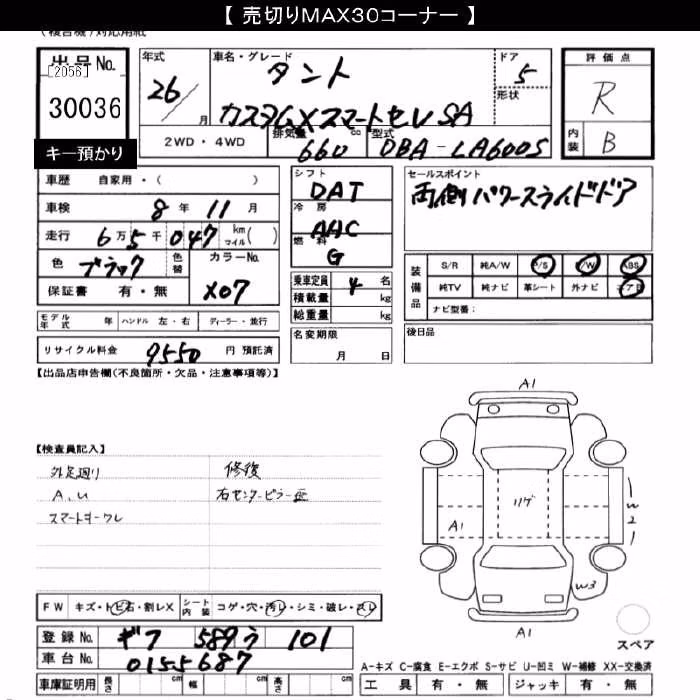 【 売切りMAX30コーナー 】
(複合機)対応用紙
出品No.
[2056]
30036
キー預かり
年式 26 / 月
車名・グレード タント
カスタムXスマートセレSA
ドア 5
形状
2WD・4WD
排気量 660 cc
型式 DBA-LA600S
評価点 R
内装 B
車歴 自家用・( )
車検 8年 11月
走行 6万5千047 km マイル( )
色 ブラック 色替
カラーNo. X07
保証書 有・無
シフト DAT
冷房 AAC
燃料 G
乗車定員 4名
積載量 kg
総重量 kg
セールスポイント
両側パワースライドドア
装備品
S/R 純A/W P/S P/W ABS
純TV 純ナビ 革シート 外ナビ エアB
ナビ型番:
モデル年式 年 ハンドル 左・右 ディーラー・並行
名変期限 月 日
後日品
リサイクル料金 9550 円 預託済
【出品店申告欄(不良箇所・欠品・注意事項等)】
【検査員記入】
外足廻り
A、U
スマートキークレ
修復
右センターピラー
A1
リゲ
A1
W2
W3
A1
スペア
FW キズ・トビ石・割レX
シート内装 コゲ・穴・汚レ・シミ・破レ・スレ
登録No. ギフ 589 う 101
車台No. 0155687
車庫証明用 長さ cm 幅 cm 高さ cm
A-キズ C-腐食 E-エクボ S-サビ U-凹ミ W-補修 XX-交換済
工具 有・無 ジャッキ 有・無